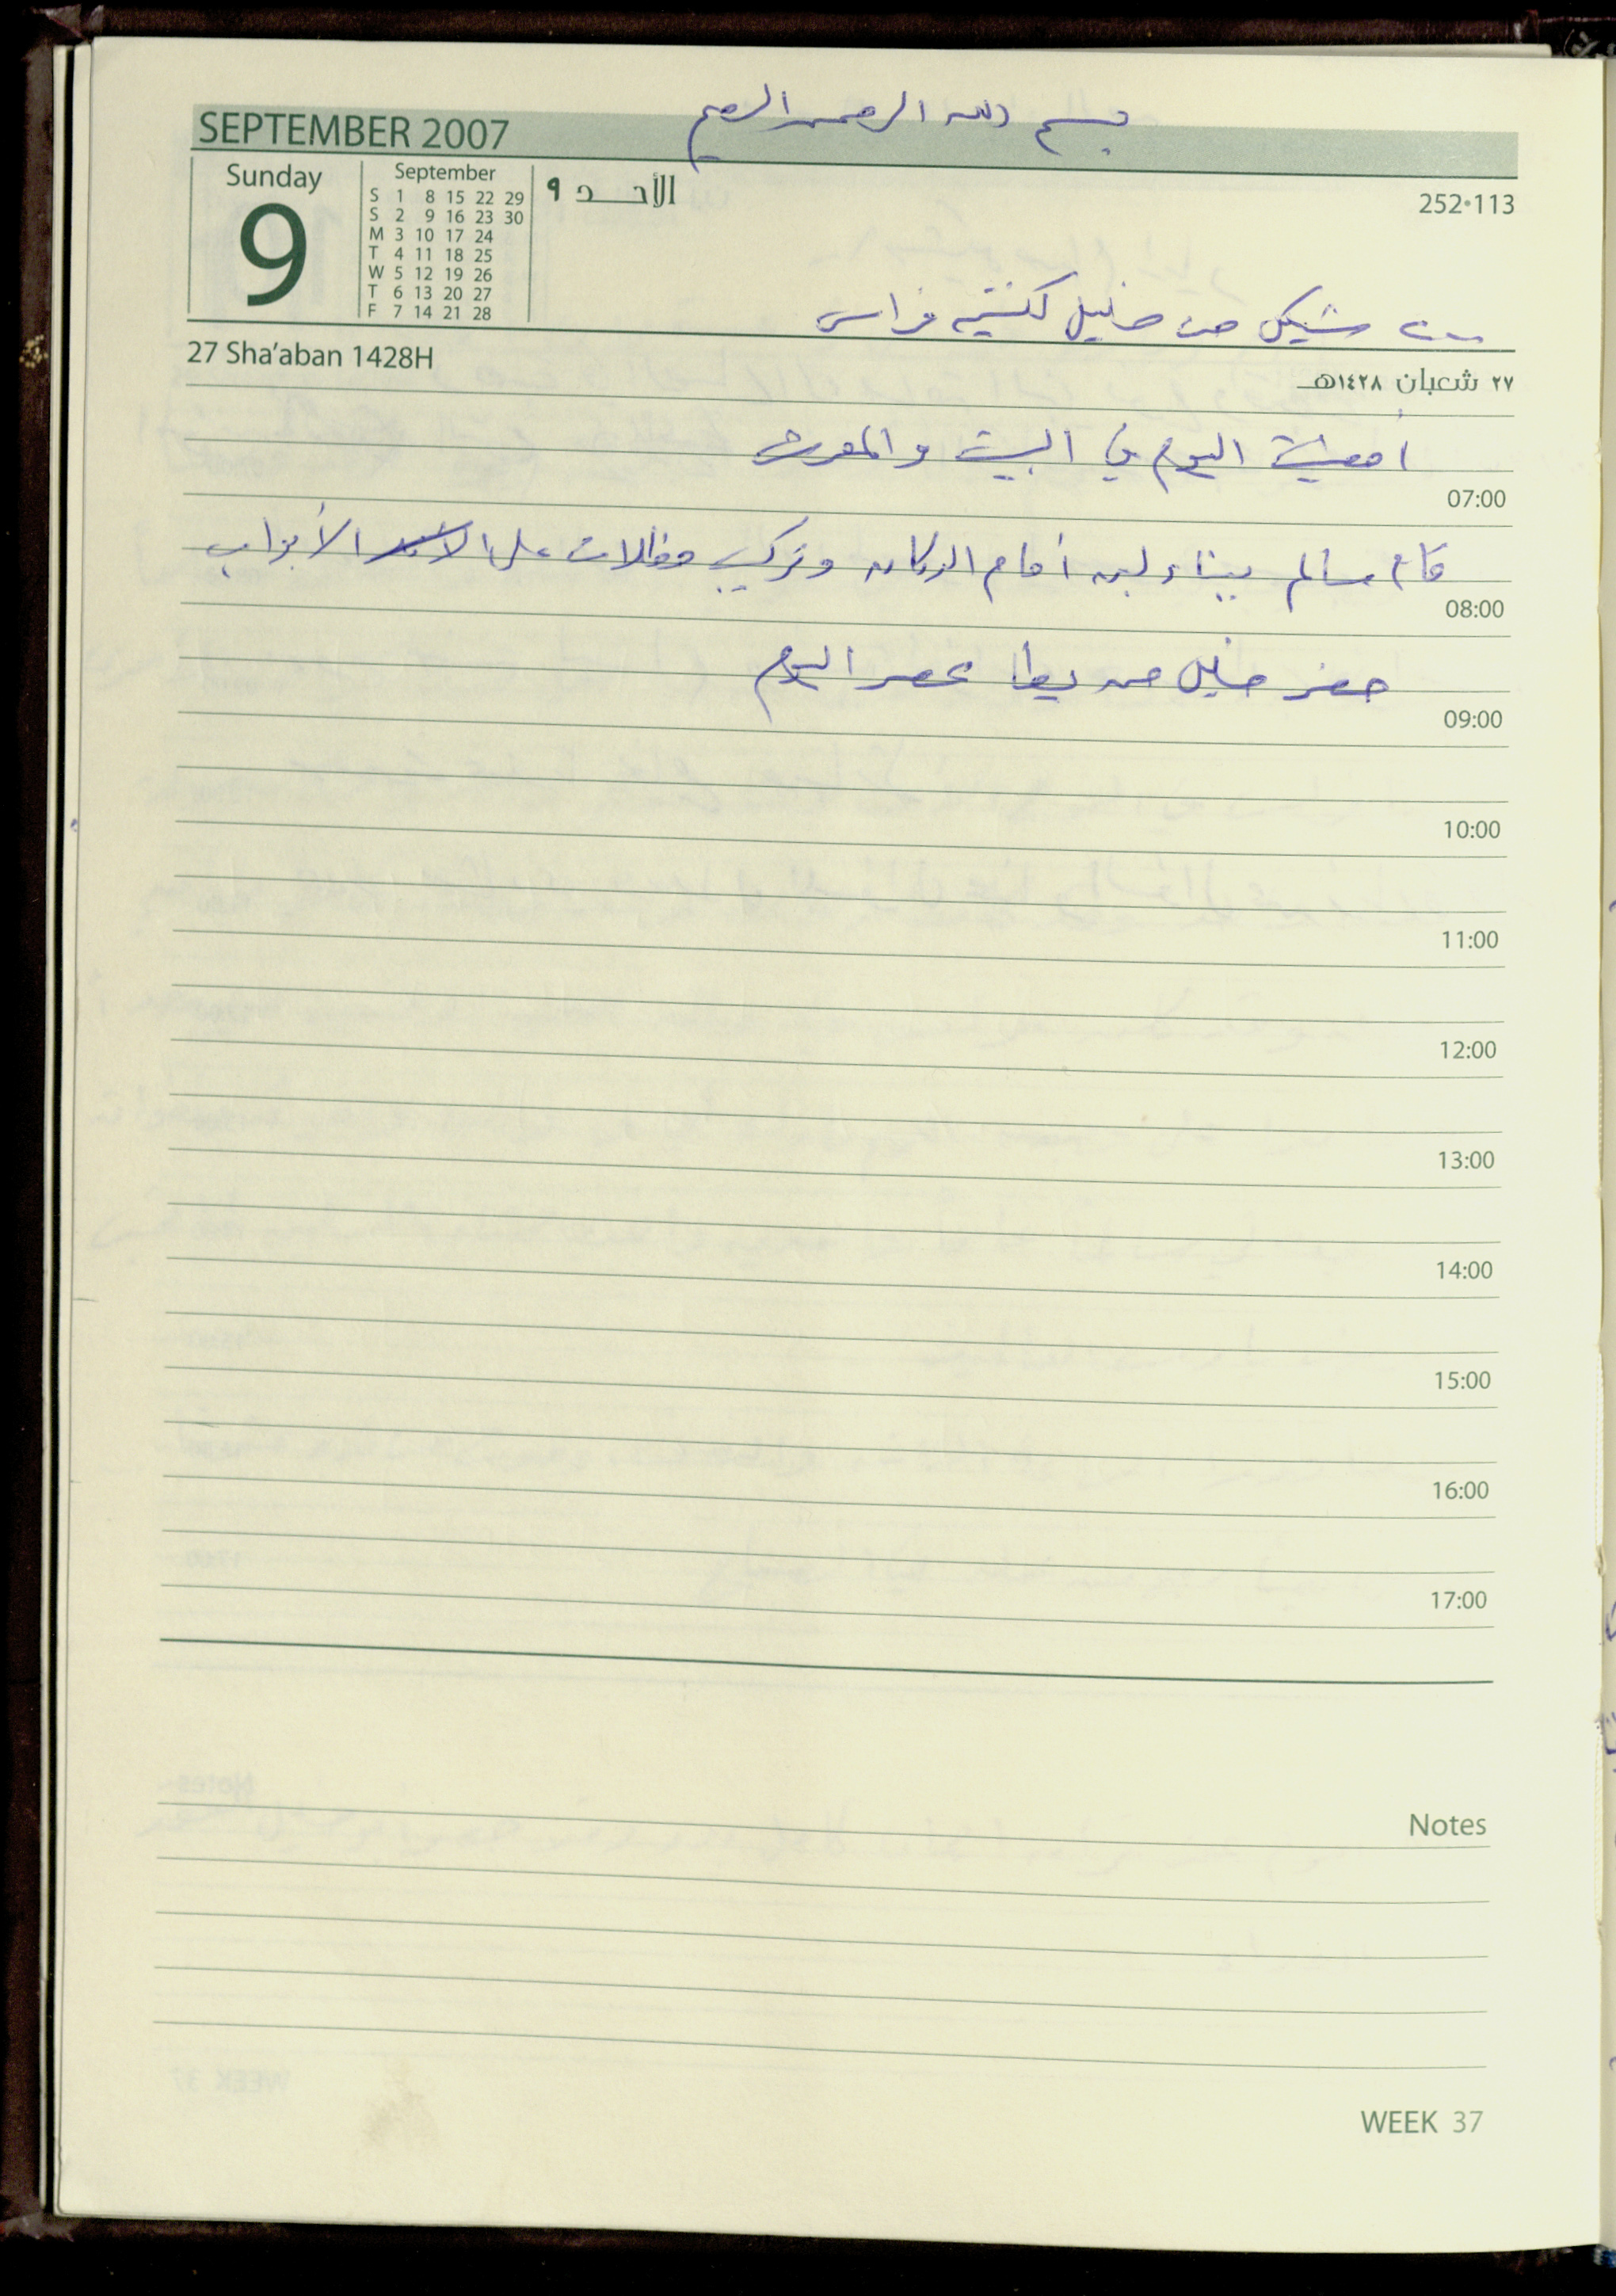 بسم الله الرحمن الرحيم
SEPTEMBER 2007
Sunday
9
September
S 1 8 15 22 29
S 2 9 16 23 30
M 3 10 17 24
T 4 11 18 25
W 5 12 19 26
T 6 13 20 27
F 7 14 21 28
الأحد ٩
252•113
شيكل من خليل لكنتيم فراس
27 Sha'aban 1428H
٢٧ شعبان ١٤٢٨هـ
أمضيت اليوم في البيت والمعرش
07:00
قام سالم ببناء لبن أمام الدكان وتركيب مظلات على الأبواب
08:00
حضر خليل من يطا عصر اليوم
09:00
10:00
11:00
12:00
13:00
14:00
15:00
16:00
17:00
Notes
WEEK 37